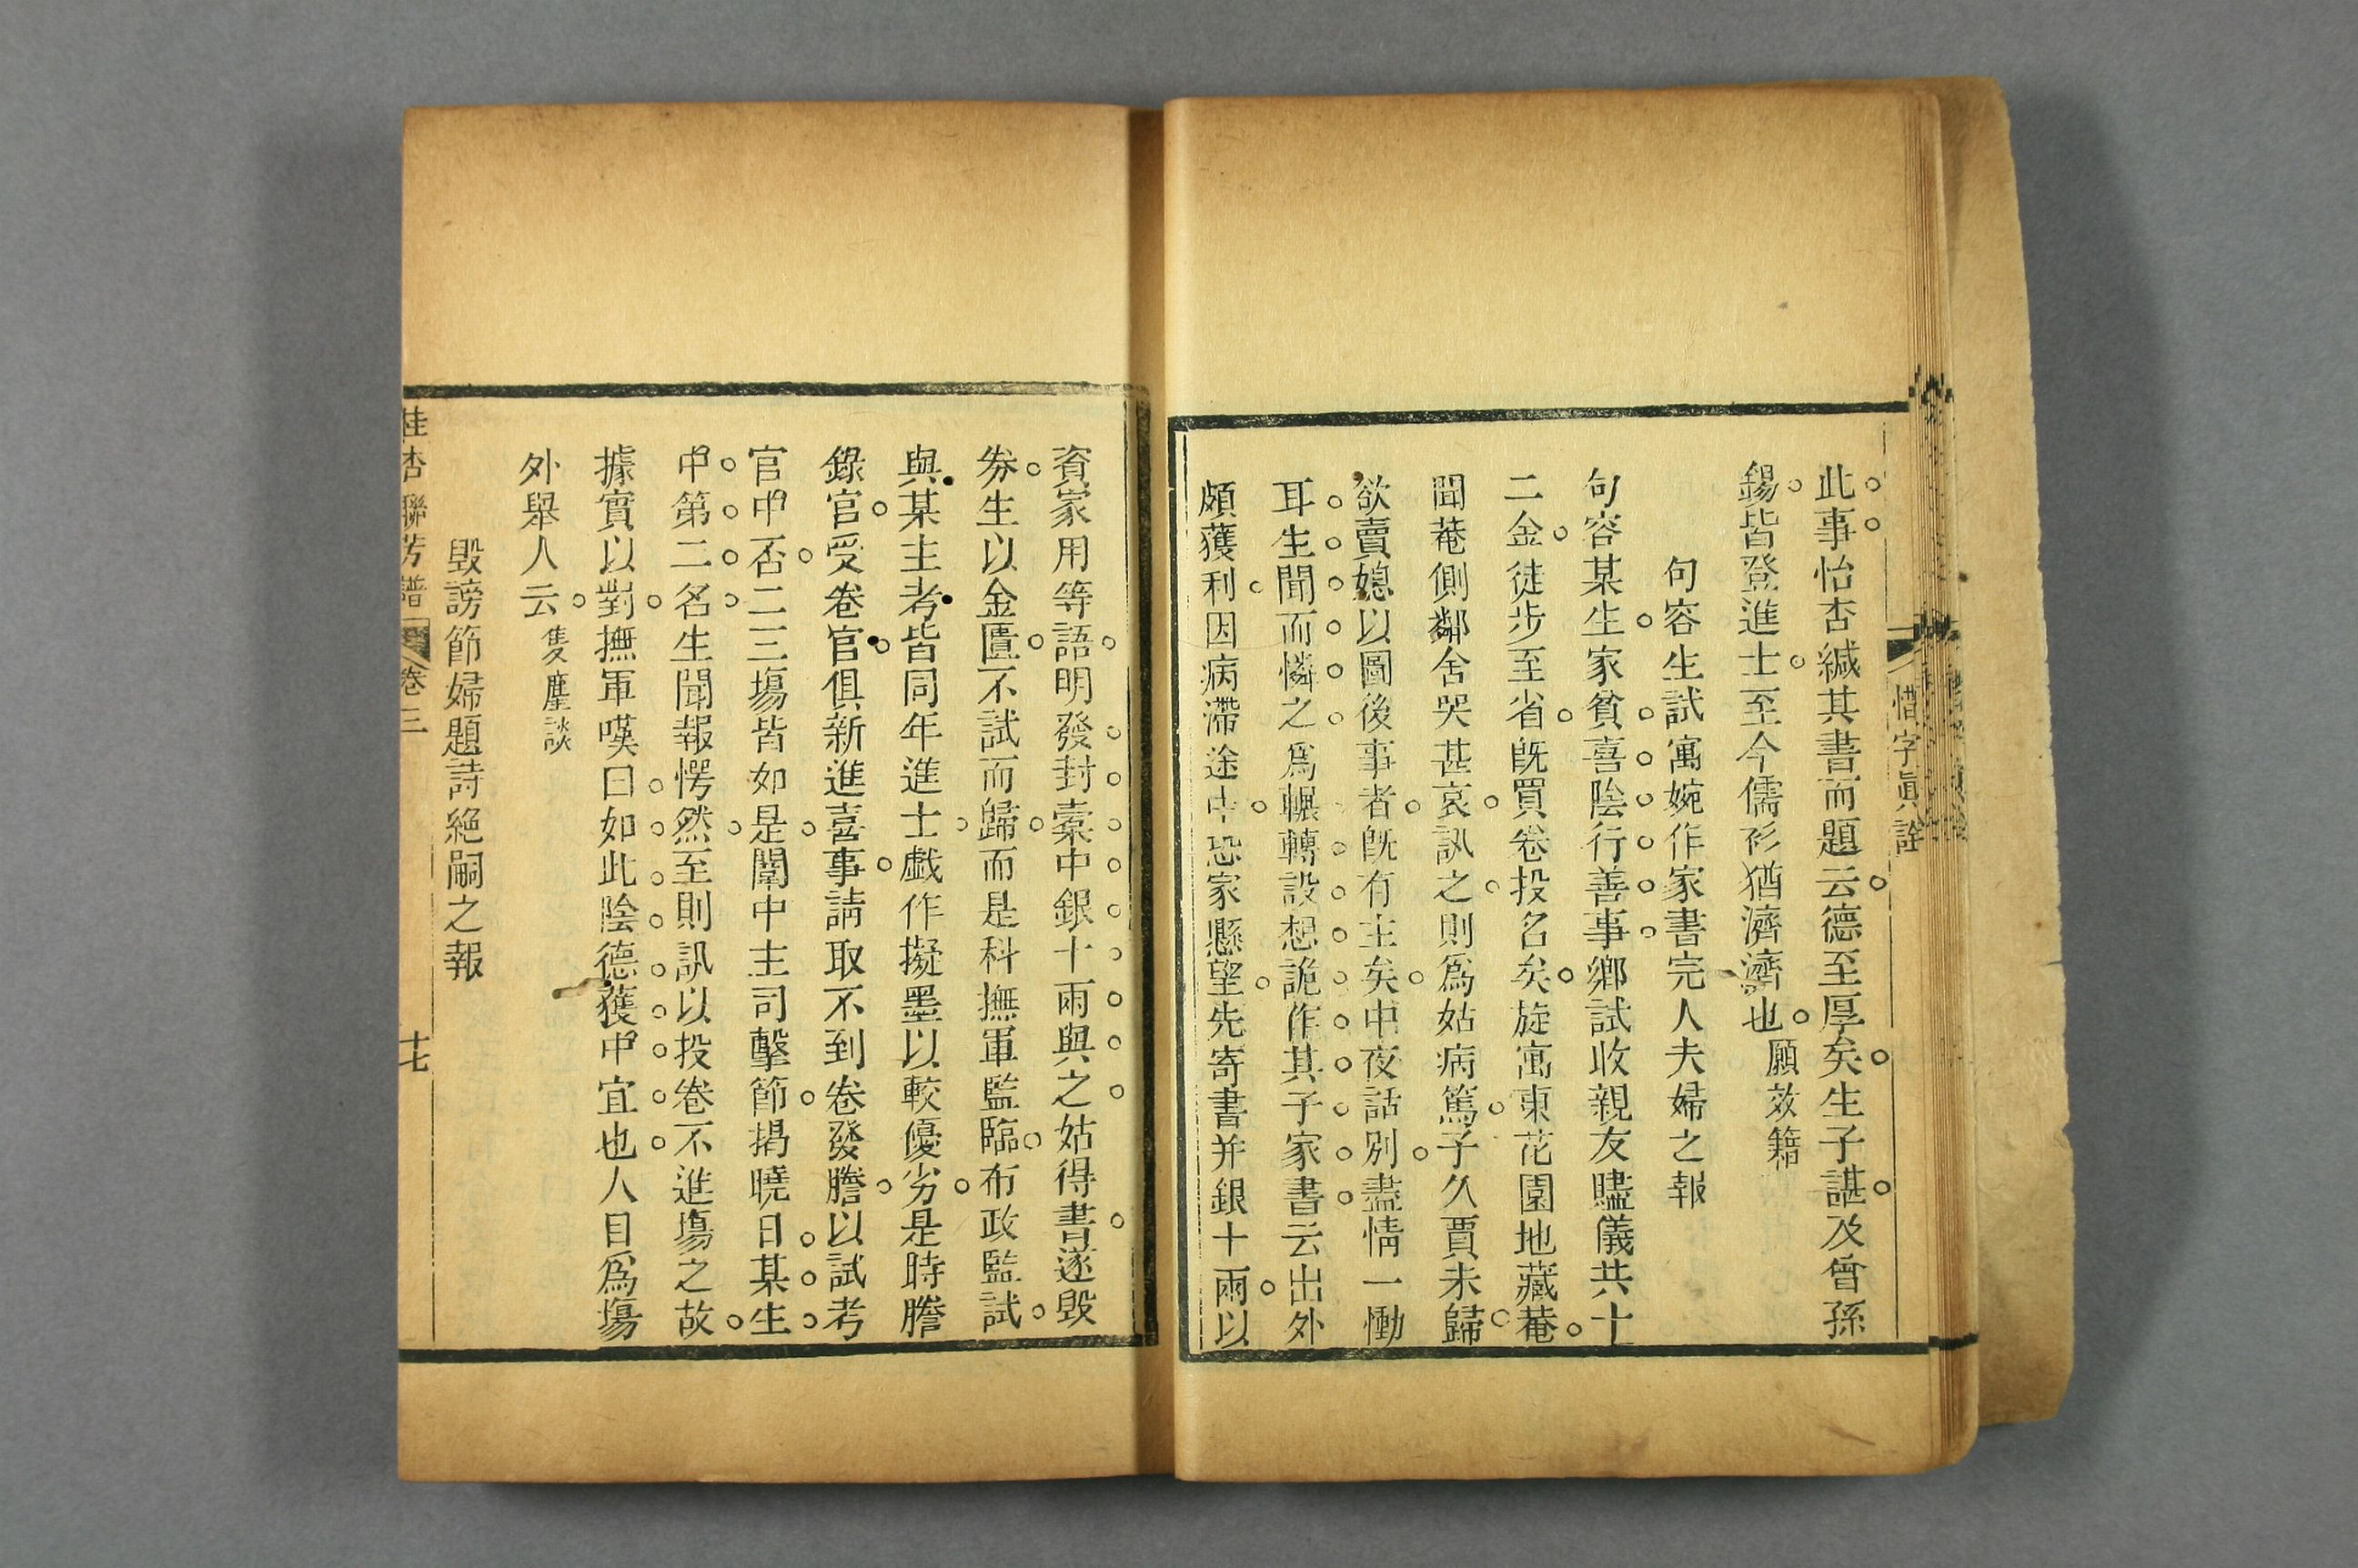 惜字眞詮
此事怡杏緘其書而題云德至厚矣生子諶及曾孫
錫皆登進士至今儒衫猶濟濟也願效籍
句容生試寓婉作家書完人夫婦之報
句容某生家貧喜陰行善事鄉試收親友贐儀共十
二金徒步至省旣買卷投名矣旋寓東花園地藏菴
聞菴側鄰舍哭甚哀訊之則爲姑病篤子久賈未歸
欲賣媳以圖後事者旣有主矣中夜話別盡情一慟
耳生聞而憐之爲輾轉設想詭作其子家書云出外
頗獲利因病滯途中恐家懸望先寄書并銀十兩以
資家用等語明發封裹中銀十兩與之姑得書遂毀
券生以金匱不試而歸而是科撫軍監臨布政監試
與某主考皆同年進士戲作擬墨以較優劣是時謄
錄官受卷官俱新進喜事請取不到卷發謄以試考
官中否二三塲皆如是闈中主司擊節揭曉日某生
中第二名生聞報愕然至則訊以投卷不進塲之故
據實以對撫軍嘆曰如此陰德獲中宜也人目爲塲
外舉人云隻塵談
毀謗節婦題詩絕嗣之報
桂杏聯芳譜 卷三 十七